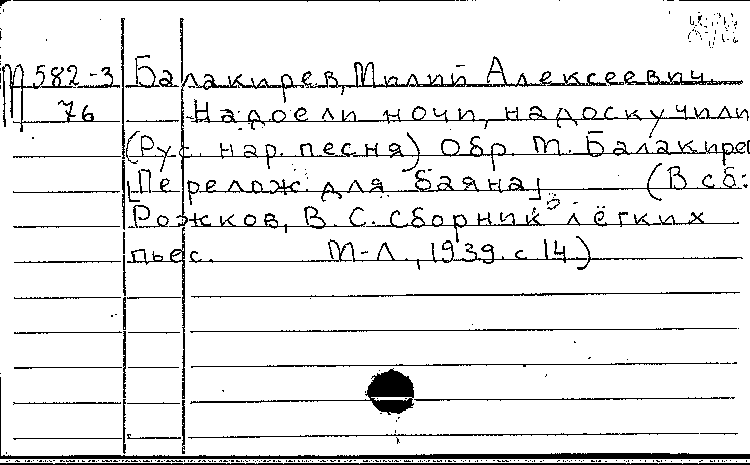 М 582-3 Балакирев, Милий Алексеевич.
76 Надоели ночи, надоскучили
(Рус. нар. песня) Обр. М. Балакирев
[Перелож. для баяна] (В сб:
Рожков, В. С. Сборник лёгких
пьес. М-Л., 1939. с 14.)